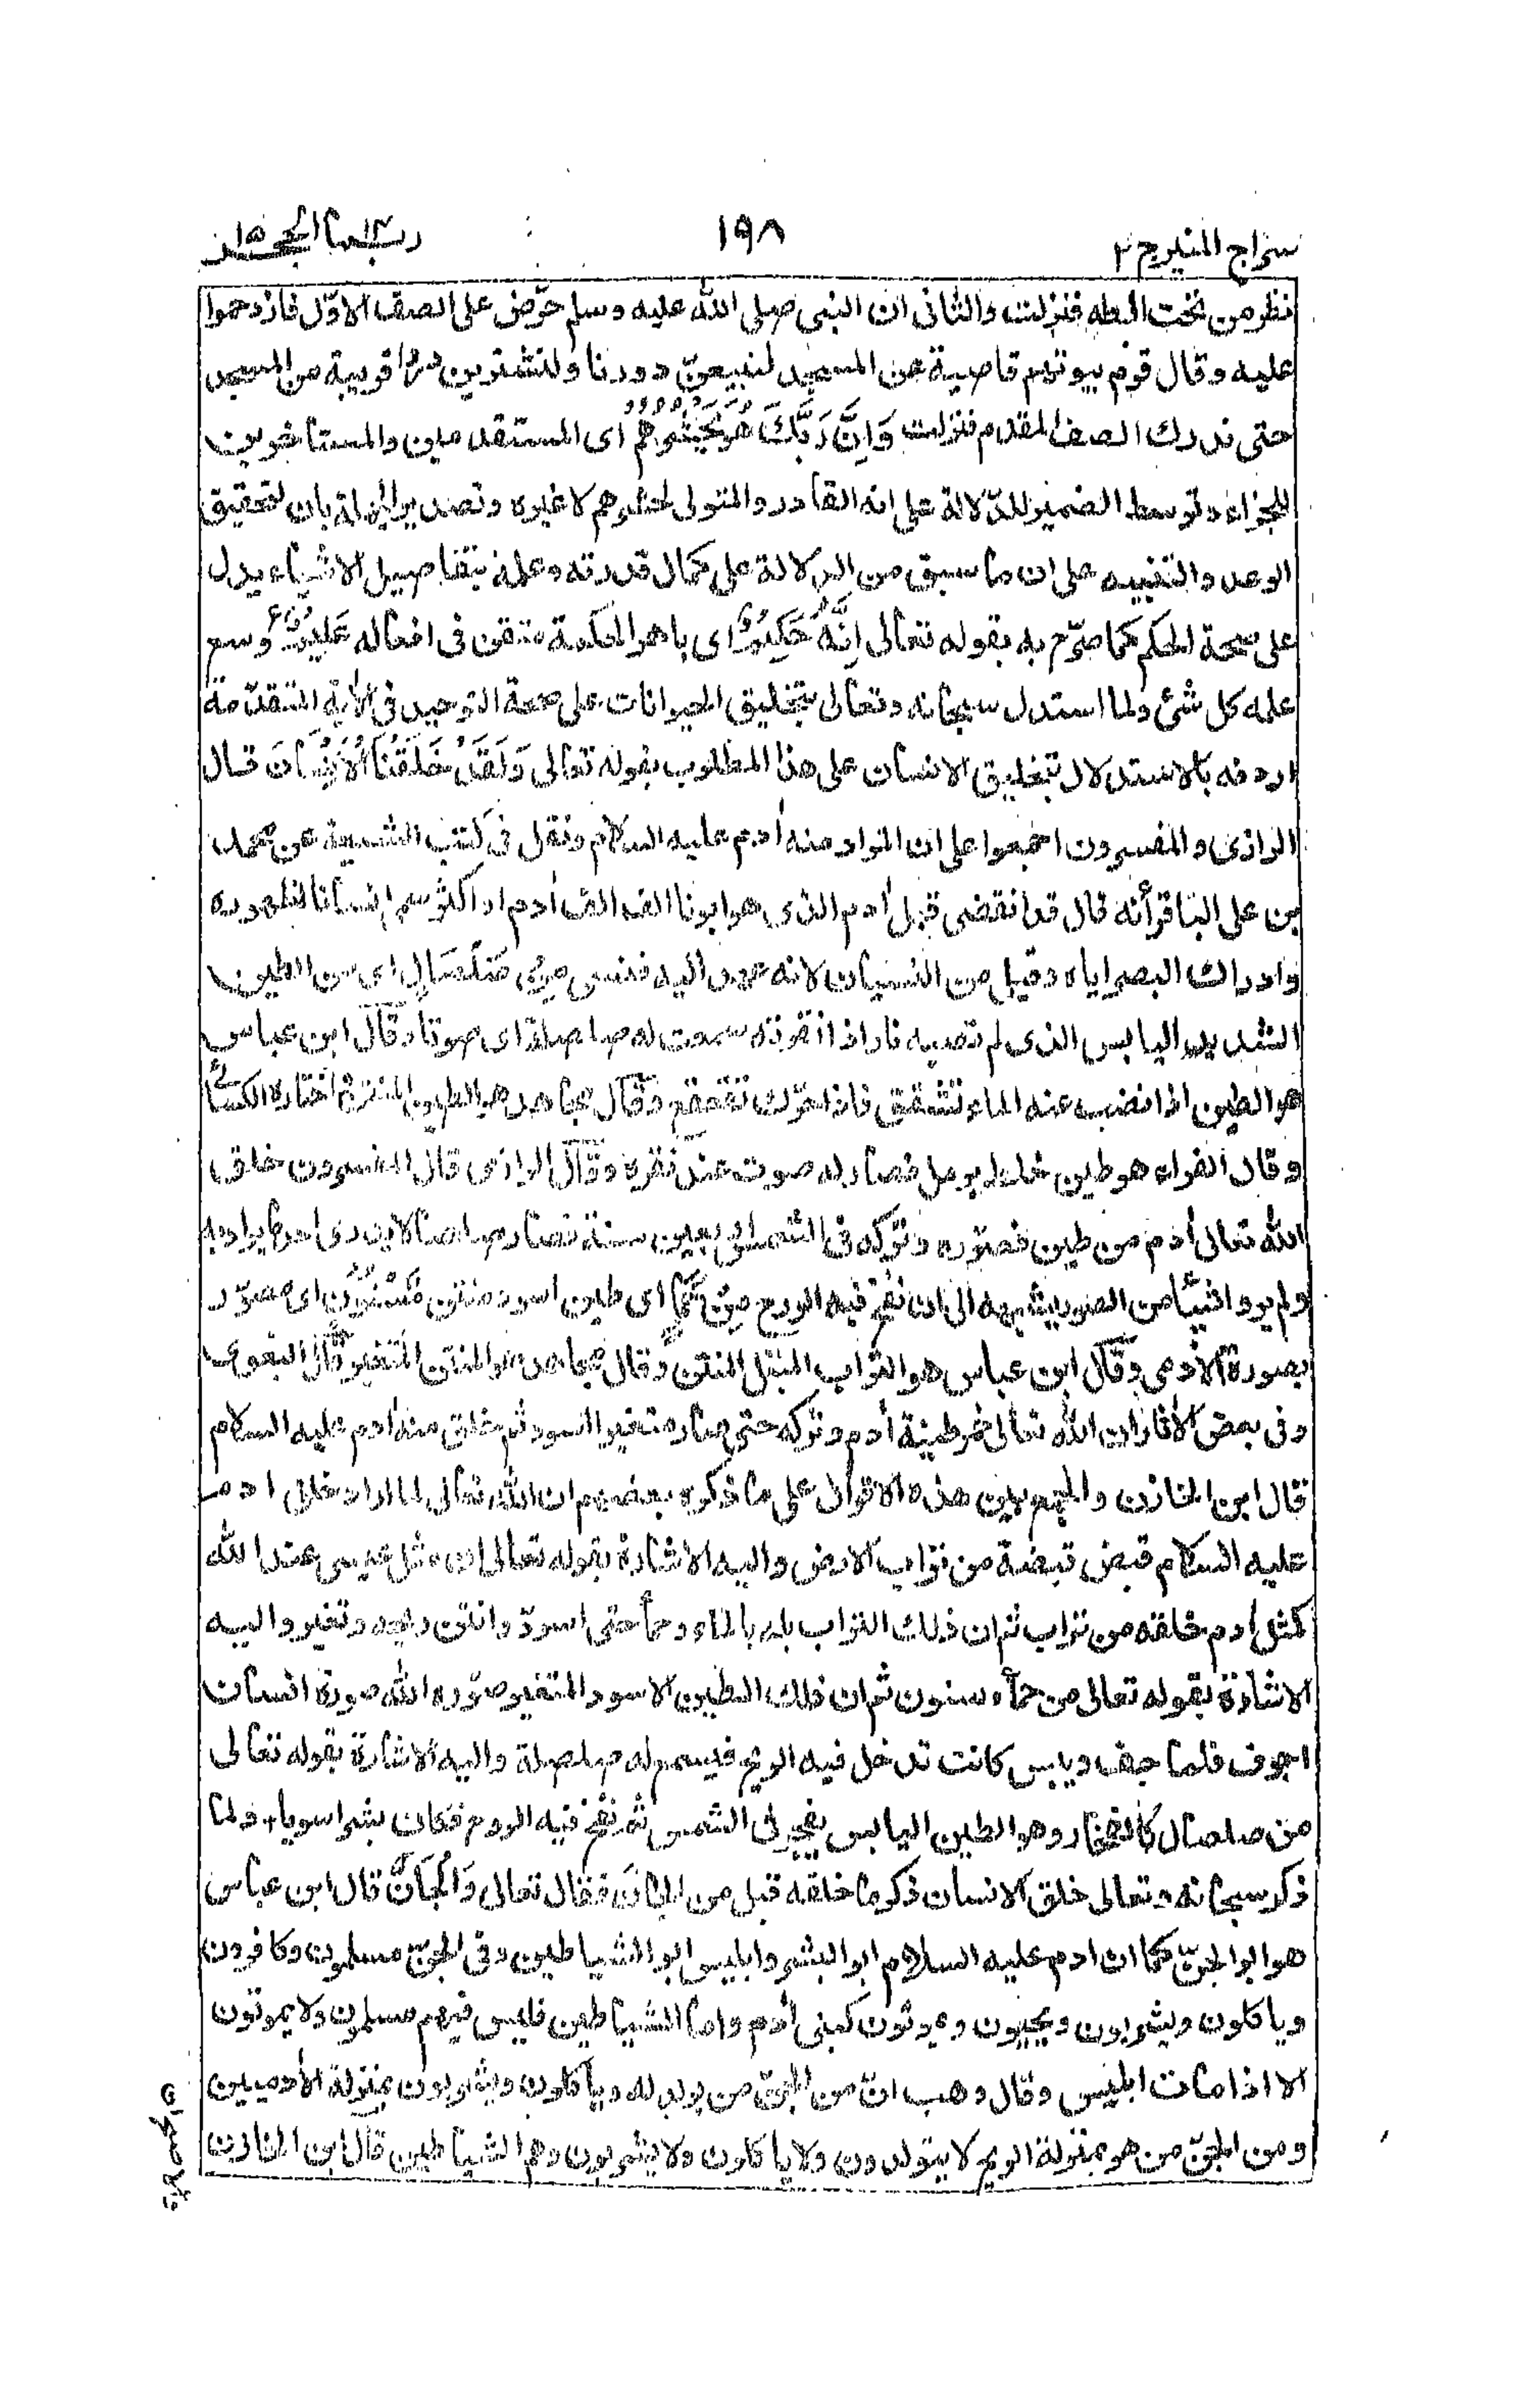 سراج المنير ج ٢
١٩٨
ربما ١٤ الحجر ١٥
نظر من تحت ابطه فنزلت والثانى ان النبى صلى الله عليه وسلم حرّض على الصف الاوّل فازدحموا
عليه وقال قوم بيوتهم قاصية عن المسجد لنبيعنّ دورنا ولنشترين دورا قريبة من المسجد
حتى ندرك الصف المقدم فنزلت وَاِنَّ رَبَّكَ هُوَ يَحْشُرُهُمْ اى المستقدمين والمستأخرين
للجزاء وتوسط الضمير للدّلالة على انه القادر والمتولى لحشرهم لا غيره وتصدير الجملة بان لتحقيق
الوعد والتنبيه على ان ما سبق من الدلالة على كمال قدرته وعلمه بتفاصيل الاشياء يدل
على صحة الحكم كما صرّح به بقوله تعالى اِنَّهُ حَكِيْمٌ اى باهر الحكمة متقن فى افعاله عَلِيْمٌ وسع
علمه كل شئ ولما استدل سبحانه وتعالى بتخليق الحيوانات على صحة التوحيد فى الأية المتقدّمة
اردفه بالاستدلال بتخليق الانسان على هذا المطلوب بقوله تعالى وَلَقَدْ خَلَقْنَا الْاِنْسَانَ قال
الرازى والمفسرون اجمعوا على ان المراد منه أدم عليه السلام ونقل فى كتب الشيعة عن محمد
بن على الباقر أنه قال قد انقضى قبل أدم الذى هو ابونا الف الف أدم او اكثر سمى انسانا لظهوره
وادراك البصر اياه وقيل من النسيان لانه عهد اليه فنسى مِنْ صَلْصَالٍ اى من الطين
الشديد اليابس الذى لم تصبه نار اذا نقرته سمعت له صلصلة اى صوتا وقال ابن عباس
هو الطين اذا نضب عنه الماء تشقق فاذا حرّك تقعقع وقال مجاهد هو الطين المنتن واختاره الكسائى
وقال الفراء هو طين خلط برمل فصار له صوت عند نقره وقال الرازى قال المفسرون خلق
الله تعالى أدم من طين فصوّره وتركه فى الشمس اربعين سنة فصار صلصالا لا يدرى احد ما يراد به
ولم يروا شيئا من الصور يشبهه الى ان نفخ فيه الروح مِنْ حَمَإٍ اى طين اسود منتن مَسْنُوْنٍ اى مصوّر
بصورة الأدمى وقال ابن عباس هو التراب المبتل المنتن وقال مجاهد هو المنتن المتغير قال البغوى
وفى بعض الأثار ان الله تعالى خمر طينة أدم وتركه حتى صار متغيرا اسود ثم خلق منه أدم عليه السلام
قال ابن الخازن والجمع بين هذه الاقوال على ما ذكره بعضهم ان الله تعالى لما اراد خلق ادم
عليه السلام قبض قبضة من تراب الارض واليه الاشارة بقوله تعالى ان مثل عيسى عند الله
كمثل أدم خلقه من تراب ثم ان ذلك التراب بله بالماء وحمأ حتى اسودّ وانتن ريحه وتغير واليه
الاشارة بقوله تعالى من حمأ مسنون ثم ان ذلك الطين الاسود المتغير صوّره الله صورة انسان
اجوف فلما جف ويبس كانت تدخل فيه الريح فيسمع له صلصلة واليه الاشارة بقوله تعالى
من صلصال كالفخار وهو الطين اليابس يفخر فى الشمس ثم نفخ فيه الروح فكان بشرا سويا، ولما
ذكر سبحانه وتعالى خلق الانسان ذكر ما خلقه قبل من الجانّ فقال تعالى وَالْجَانَّ قال ابن عباس
هو ابو الجنّ كما ان ادم عليه السلام ابو البشر وابليس ابو الشياطين وفى الجنّ مسلمون وكافرون
وياكلون ويشربون ويحيون ويموتون كبنى أدم واما الشياطين فليس فيهم مسلمون ولا يموتون
الا اذا مات ابليس وقال وهب انّ من الجنّ من يولد له وياكلون ويشربون بمنزلة الأدميين
ومن الجنّ من هو بمنزلة الريح لا يتوالدون ولا ياكلون ولا يشربون وهم الشياطين قال ابن الخازن